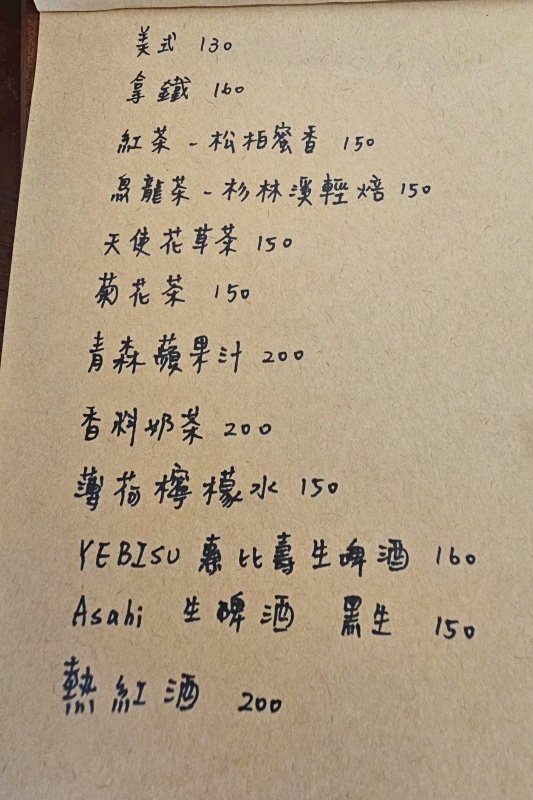 美式 130
拿鐵 160
紅茶 - 松柏蜜香 150
烏龍茶 - 杉林溪輕焙 150
天使花草茶 150
菊花茶 150
青森蘋果汁 200
香料奶茶 200
薄荷檸檬水 150
YEBISU 惠比壽生啤酒 160
Asahi 生啤酒 黑生 150
熱紅酒 200